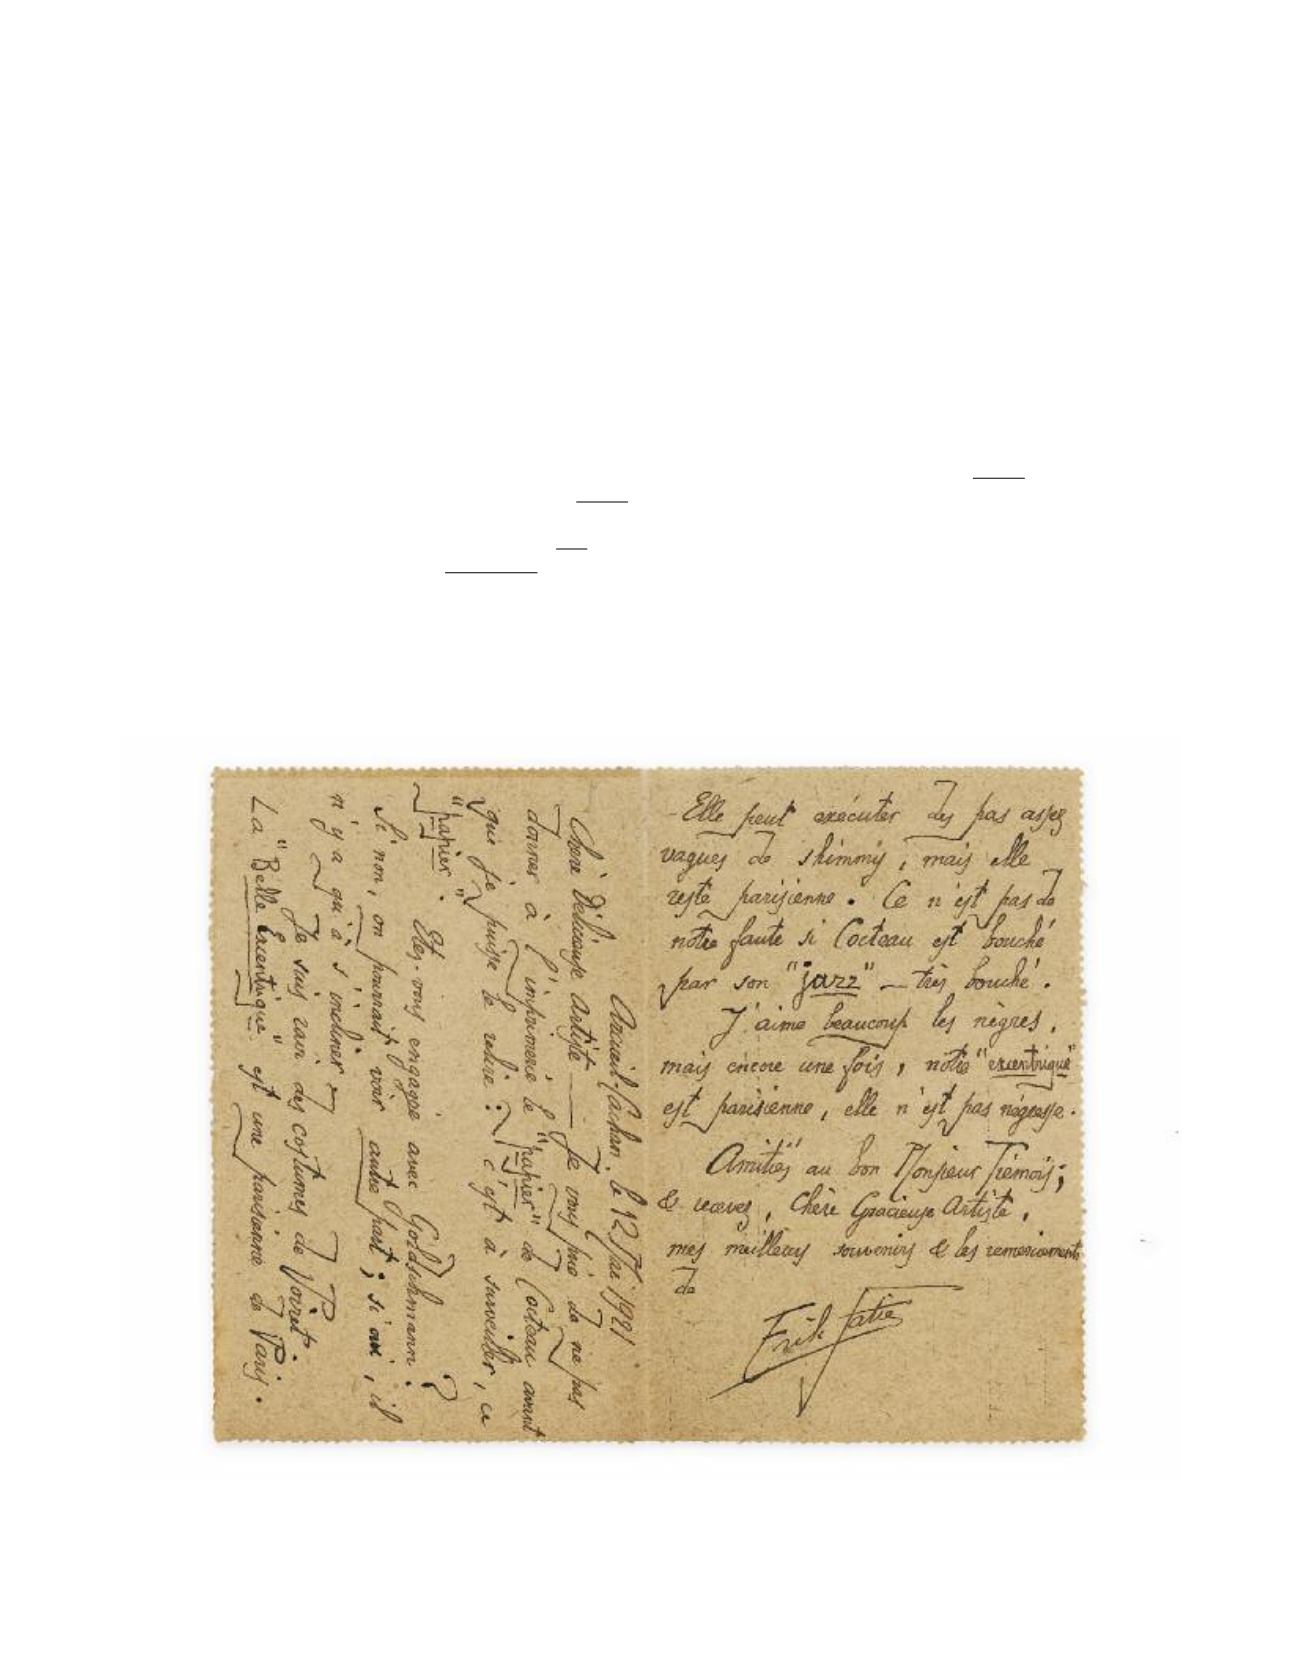 Arcueil-Cachan. le 12 Mai 1921
Chère Délicieuse Artiste — Je vous prie de ne pas
donner à l'imprimerie le "papier" de Cocteau avant
que je puisse le relire : c'est à surveiller, ce
"papier".
Etes-vous engagée avec Goldschmann ?
Si non, on pourrait voir autre part ; si oui, il
n'y a qu'à s'incliner.
Je suis ravi des costumes de
La "Belle Excentrique" est une parisienne de Paris.
Elle peut exécuter des pas assez
vagues de shimmy, mais elle
reste parisienne. Ce n'est pas de
notre faute si Cocteau est bouché
par son "jazz" — très bouché.
J'aime beaucoup les nègres,
mais encore une fois, notre "excentrique"
est parisienne, elle n'est pas négresse.
Amitiés au bon Monsieur Trémois;
& recevez, Chère Gracieuse Artiste,
mes meilleurs souvenirs & les remerciements
de
Erik Satie